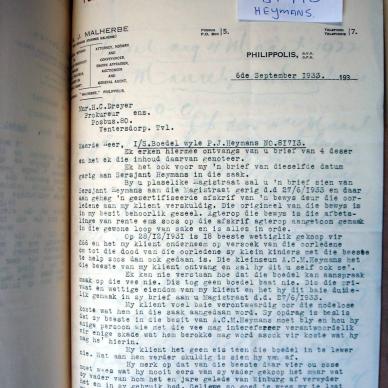 HEYMANS.
J. MALHERBE
ATTORNEY, NOTARY
AND
CONVEYANCER,
SWORN APPRAISER,
AUCTIONEER
AND
GENERAL AGENT,
"MALHERBE," PHILIPPOLIS.
P.O. BOX 5.
TELEFOON 7.
PHILIPPOLIS,
6de September 1933. 193
Mnr.H.C.Dreyer
Prokureur ens.
Posbus.80.
Ventersdorp. Tvl.
Waarde Heer,
I/S.Boedel wyle P.J.Heymans NO.81713.
Ek erken hiermee ontvangs van u brief van 4 deser
en het ek die inhoud daarvan genoteer.
Ek het ook voor my 'n brief van dieselfde datum
gerig aan Sersjant Heymans in die saak.
By u plaaslike Magistraat sal u 'n brief sien van
Sersjant Heymans aan die Magistraat gerig d.d 27/6/1933 en daar
aan gehag 'n gesertifiseerde afskrif van 'n bewys deur die oor-
ledene aan my klient verskuldig. Die origineel van die bewys is
in my besit behoorlik geseel. Agterop die bewys is die afbeta-
lings van rente ens soos op die afskrif agterop aangetoon gemaak
in die gewone loop van sake en is alles in orde.
Op 28/12/1931 is 18 beeste wettig gekoop vir
en het my klient ondersoek op versoek van die oorledene
om tot die dood van die oorledene sy klein kinders met die beeste
te help soos dan ook gedaan is. Die kleinseun A.C.M.Heymans het
die beeste van my klient ontvang en sal hy dit u self ook sê.
Ek kan nie verstaan hoe dat die boedel kan aanspraak
maak op die vee nie. Dis tog geen boedel baat nie. Dis die pri-
vaat en wettige eiendom van my klient en het hy dit baie duide-
lik gemaak in sy brief aan u Magistraat d.d. 27/6/1933.
My klient voel baie verontwaardig oor die nodelose
koste wat hem in die saak aangedaan word. My opdrag is beslis
dat sy beeste in die besit van A.C.M.Heymans moet bly en hou hy
enige persoon wie met die vee mag interefeer verantwoordelik
vir enige skade wat hem berokke mag word asook vir koste wat hy
mag he' hierin.
My klient het geen eis teen die boedel in te lewer
nie. Wat aan hem verder skuldig is sien hy van af.
My merk op dat van die beeste daar vier ou osse
moet wees wat hy nooit eers van sy vader gekoop het maar wat
sy vader van hom het en jare gelede van Kimburg af verwyder